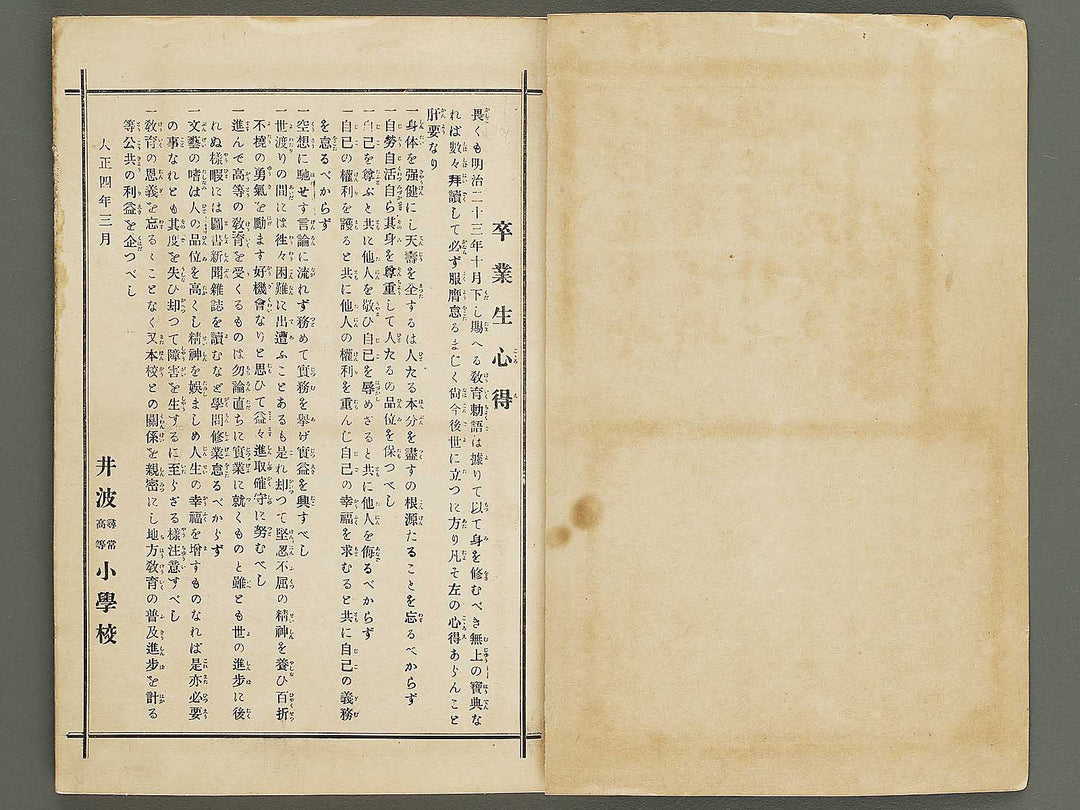 卒業生心得
畏くも明治二十三年十月下し賜へる敎育勅語は據りて以て身を修むべき無上の寶典な
れば數々拜讀して必ず服膺怠るまじく尙今後世に立つに方り凡そ左の心得あらんこと
肝要なり
一身体を强健にし天壽を全するは人たる本分を盡すの根源たることを忘るべからず
一自勞自活自ら其身を尊重して人たるの品位を保つべし
一自己を尊ぶと共に他人を敬ひ自己を辱めざると共に他人を侮るべからず
一自己の權利を護ると共に他人の權利を重んじ自己の幸福を求むると共に自己の義務
を怠るべからず
一空想に馳せず言論に流れず務めて實務を擧げ實益を興すべし
一世渡りの間には徃々困難に出遭ふことあるも是れ却つて堅忍不屈の精神を養ひ百折
不撓の勇氣を勵ます好機會なりと思ひて益々進取確守に努むべし
一進んで高等の敎育を受くるものは勿論直ちに實業に就くものと雖とも世の進步に後
れぬ樣暇には圖書新聞雜誌を讀むなど學問修業怠るべからず
一文藝の嗜は人の品位を高くし精神を娛ましめ人生の幸福を增すものなれば是亦必要
の事なれとも其度を失ひ却つて障害を生するに至らざる樣注意すべし
一敎育の恩義を忘るゝことなく又本校との關係を親密にし地方敎育の普及進步を計る
等公共の利益を企つべし
大正四年三月
井波尋常高等小學校